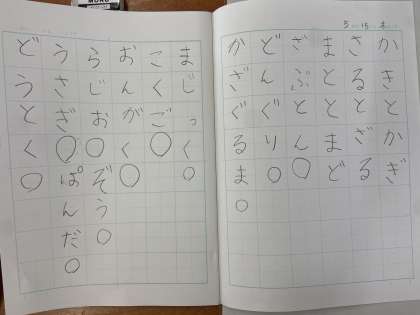 MONO
5/15 木
かきとかぎ
さるとざる
まととまど
ざぶとん。
どんぐり。
かざぐるま。
まじっく。
こくご。
おんがく。
らじお。ぞう。
うさぎ。ぱんだ。
どうとく。